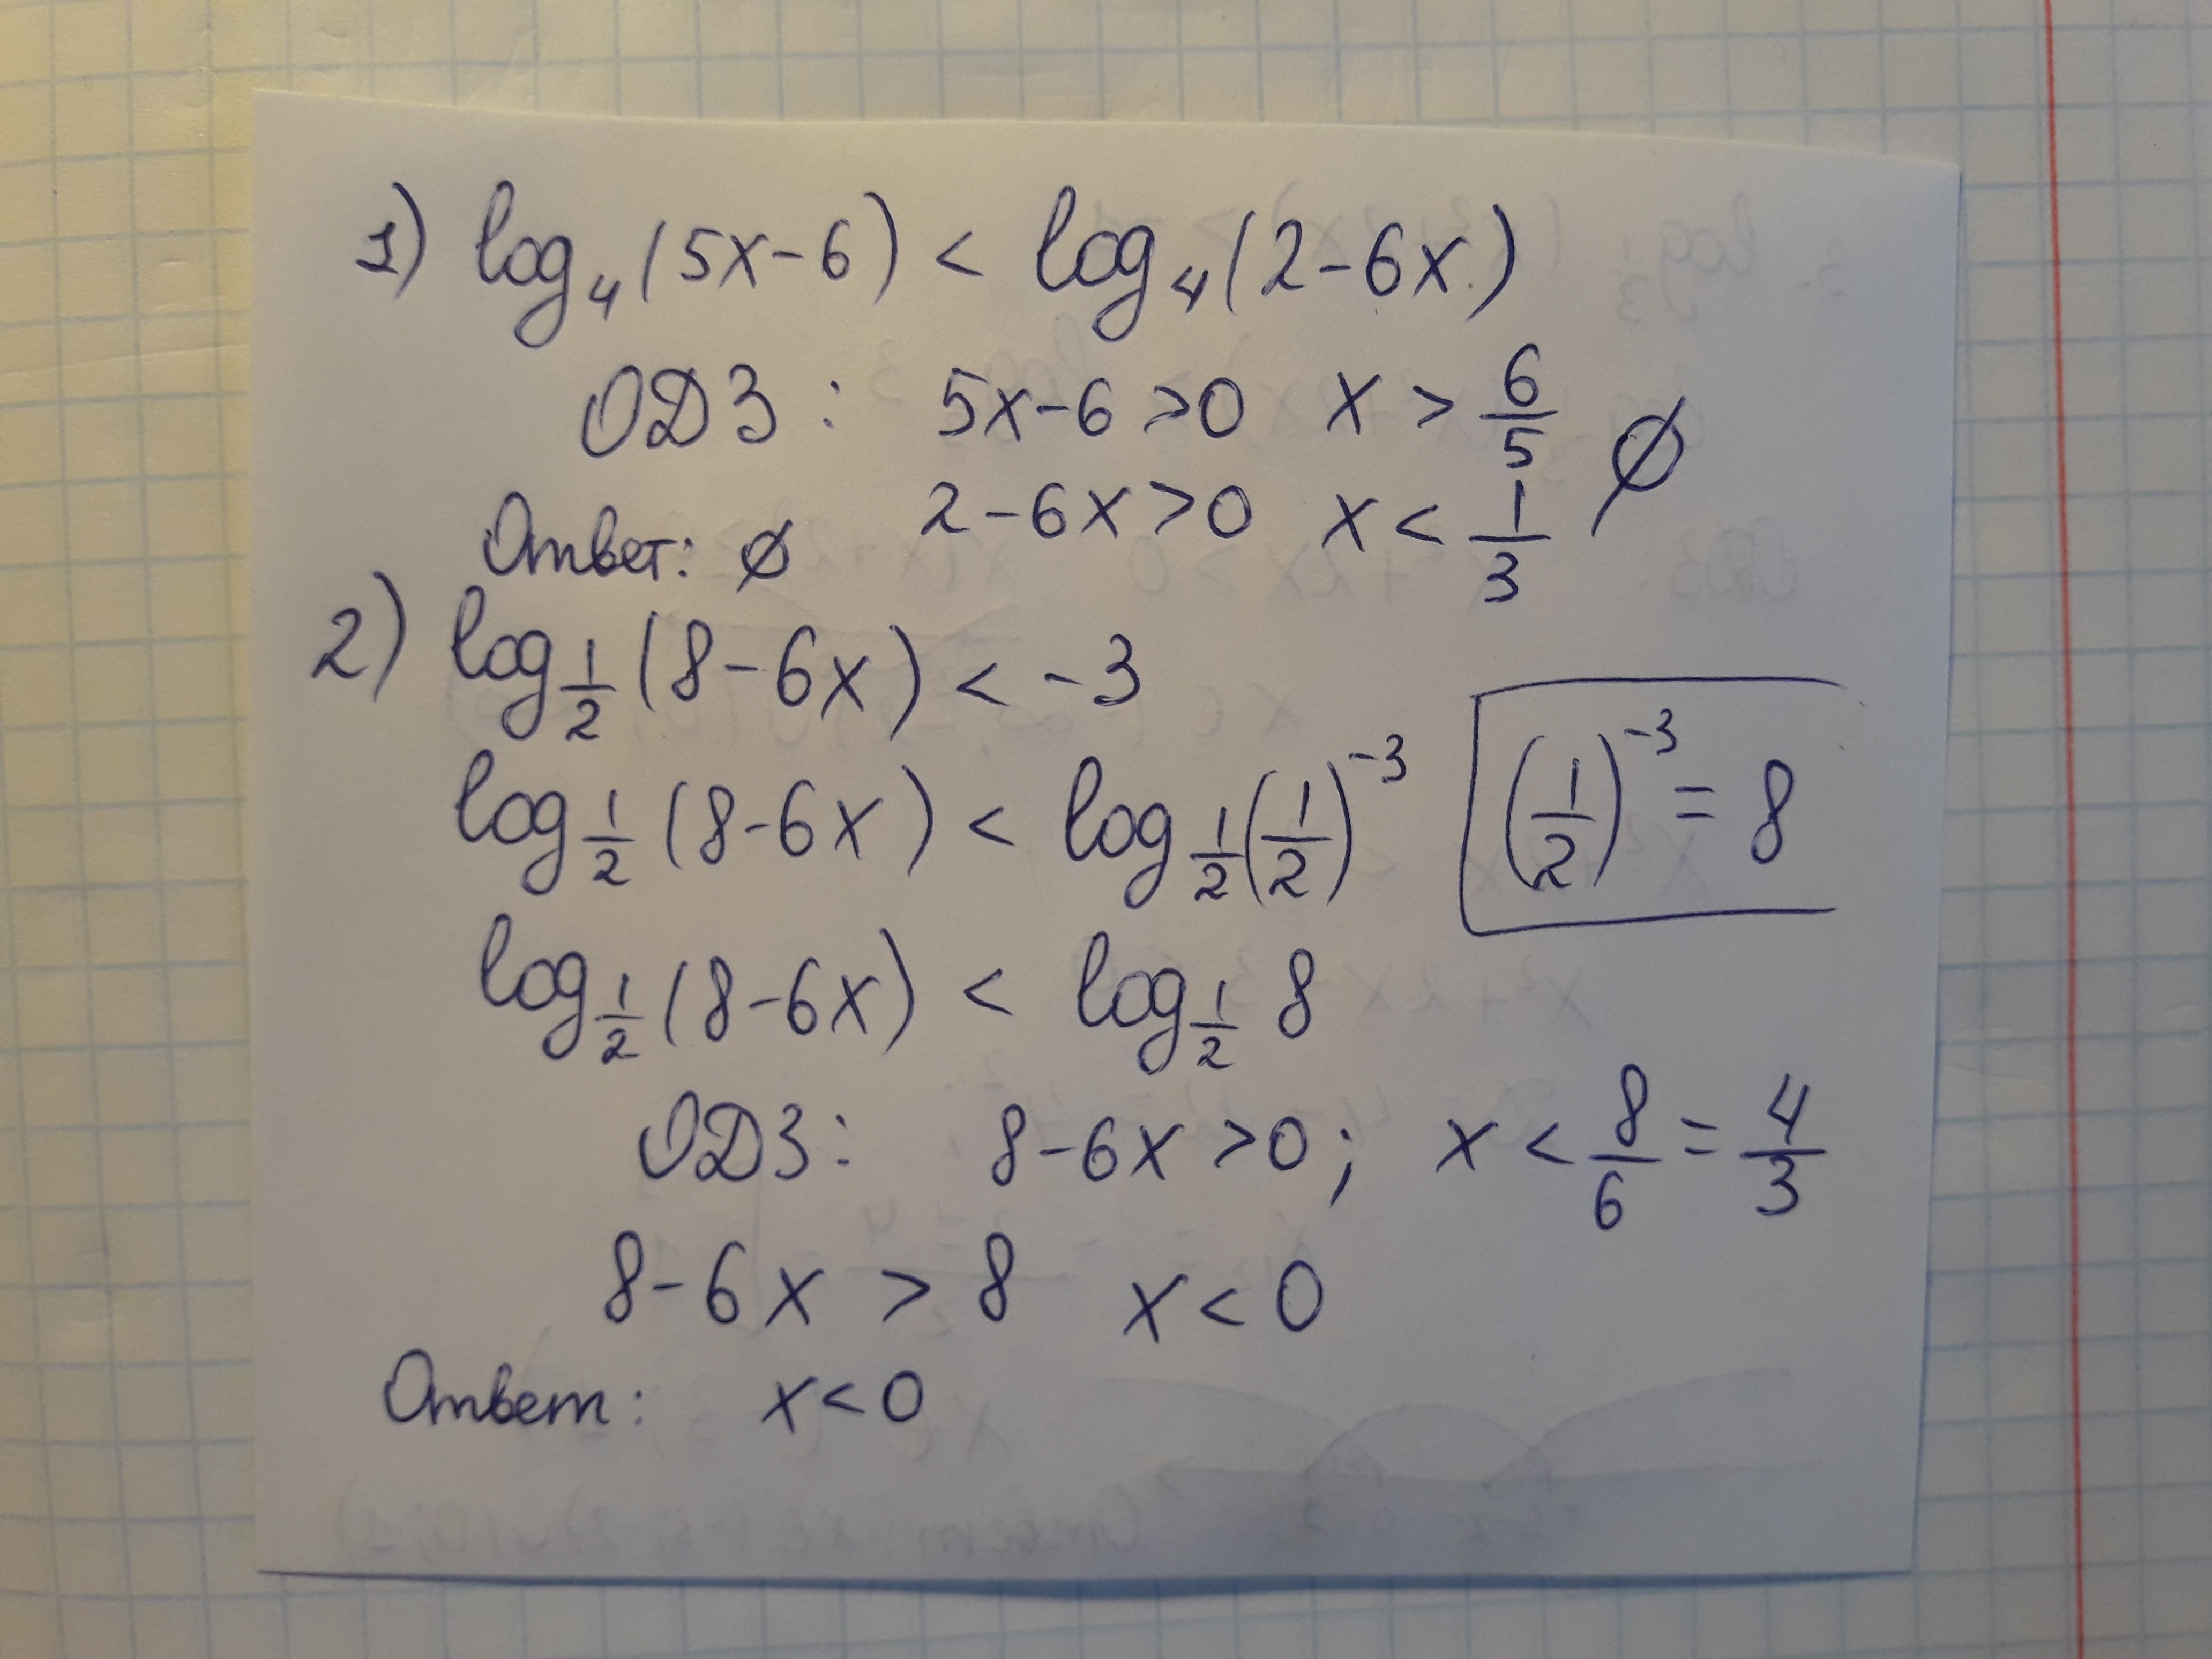 1) log₄(5x-6) < log₄(2-6x)
ОДЗ: 5x-6>0 x > 6/5 ∅
2-6x>0 x < 1/3
Ответ: ∅
2) log_{1/2}(8-6x) < -3
log_{1/2}(8-6x) < log_{1/2}(1/2)⁻³ (1/2)⁻³ = 8
log_{1/2}(8-6x) < log_{1/2} 8
ОДЗ: 8-6x>0; x < 8/6 = 4/3
8-6x > 8 x<0
Ответ: x<0